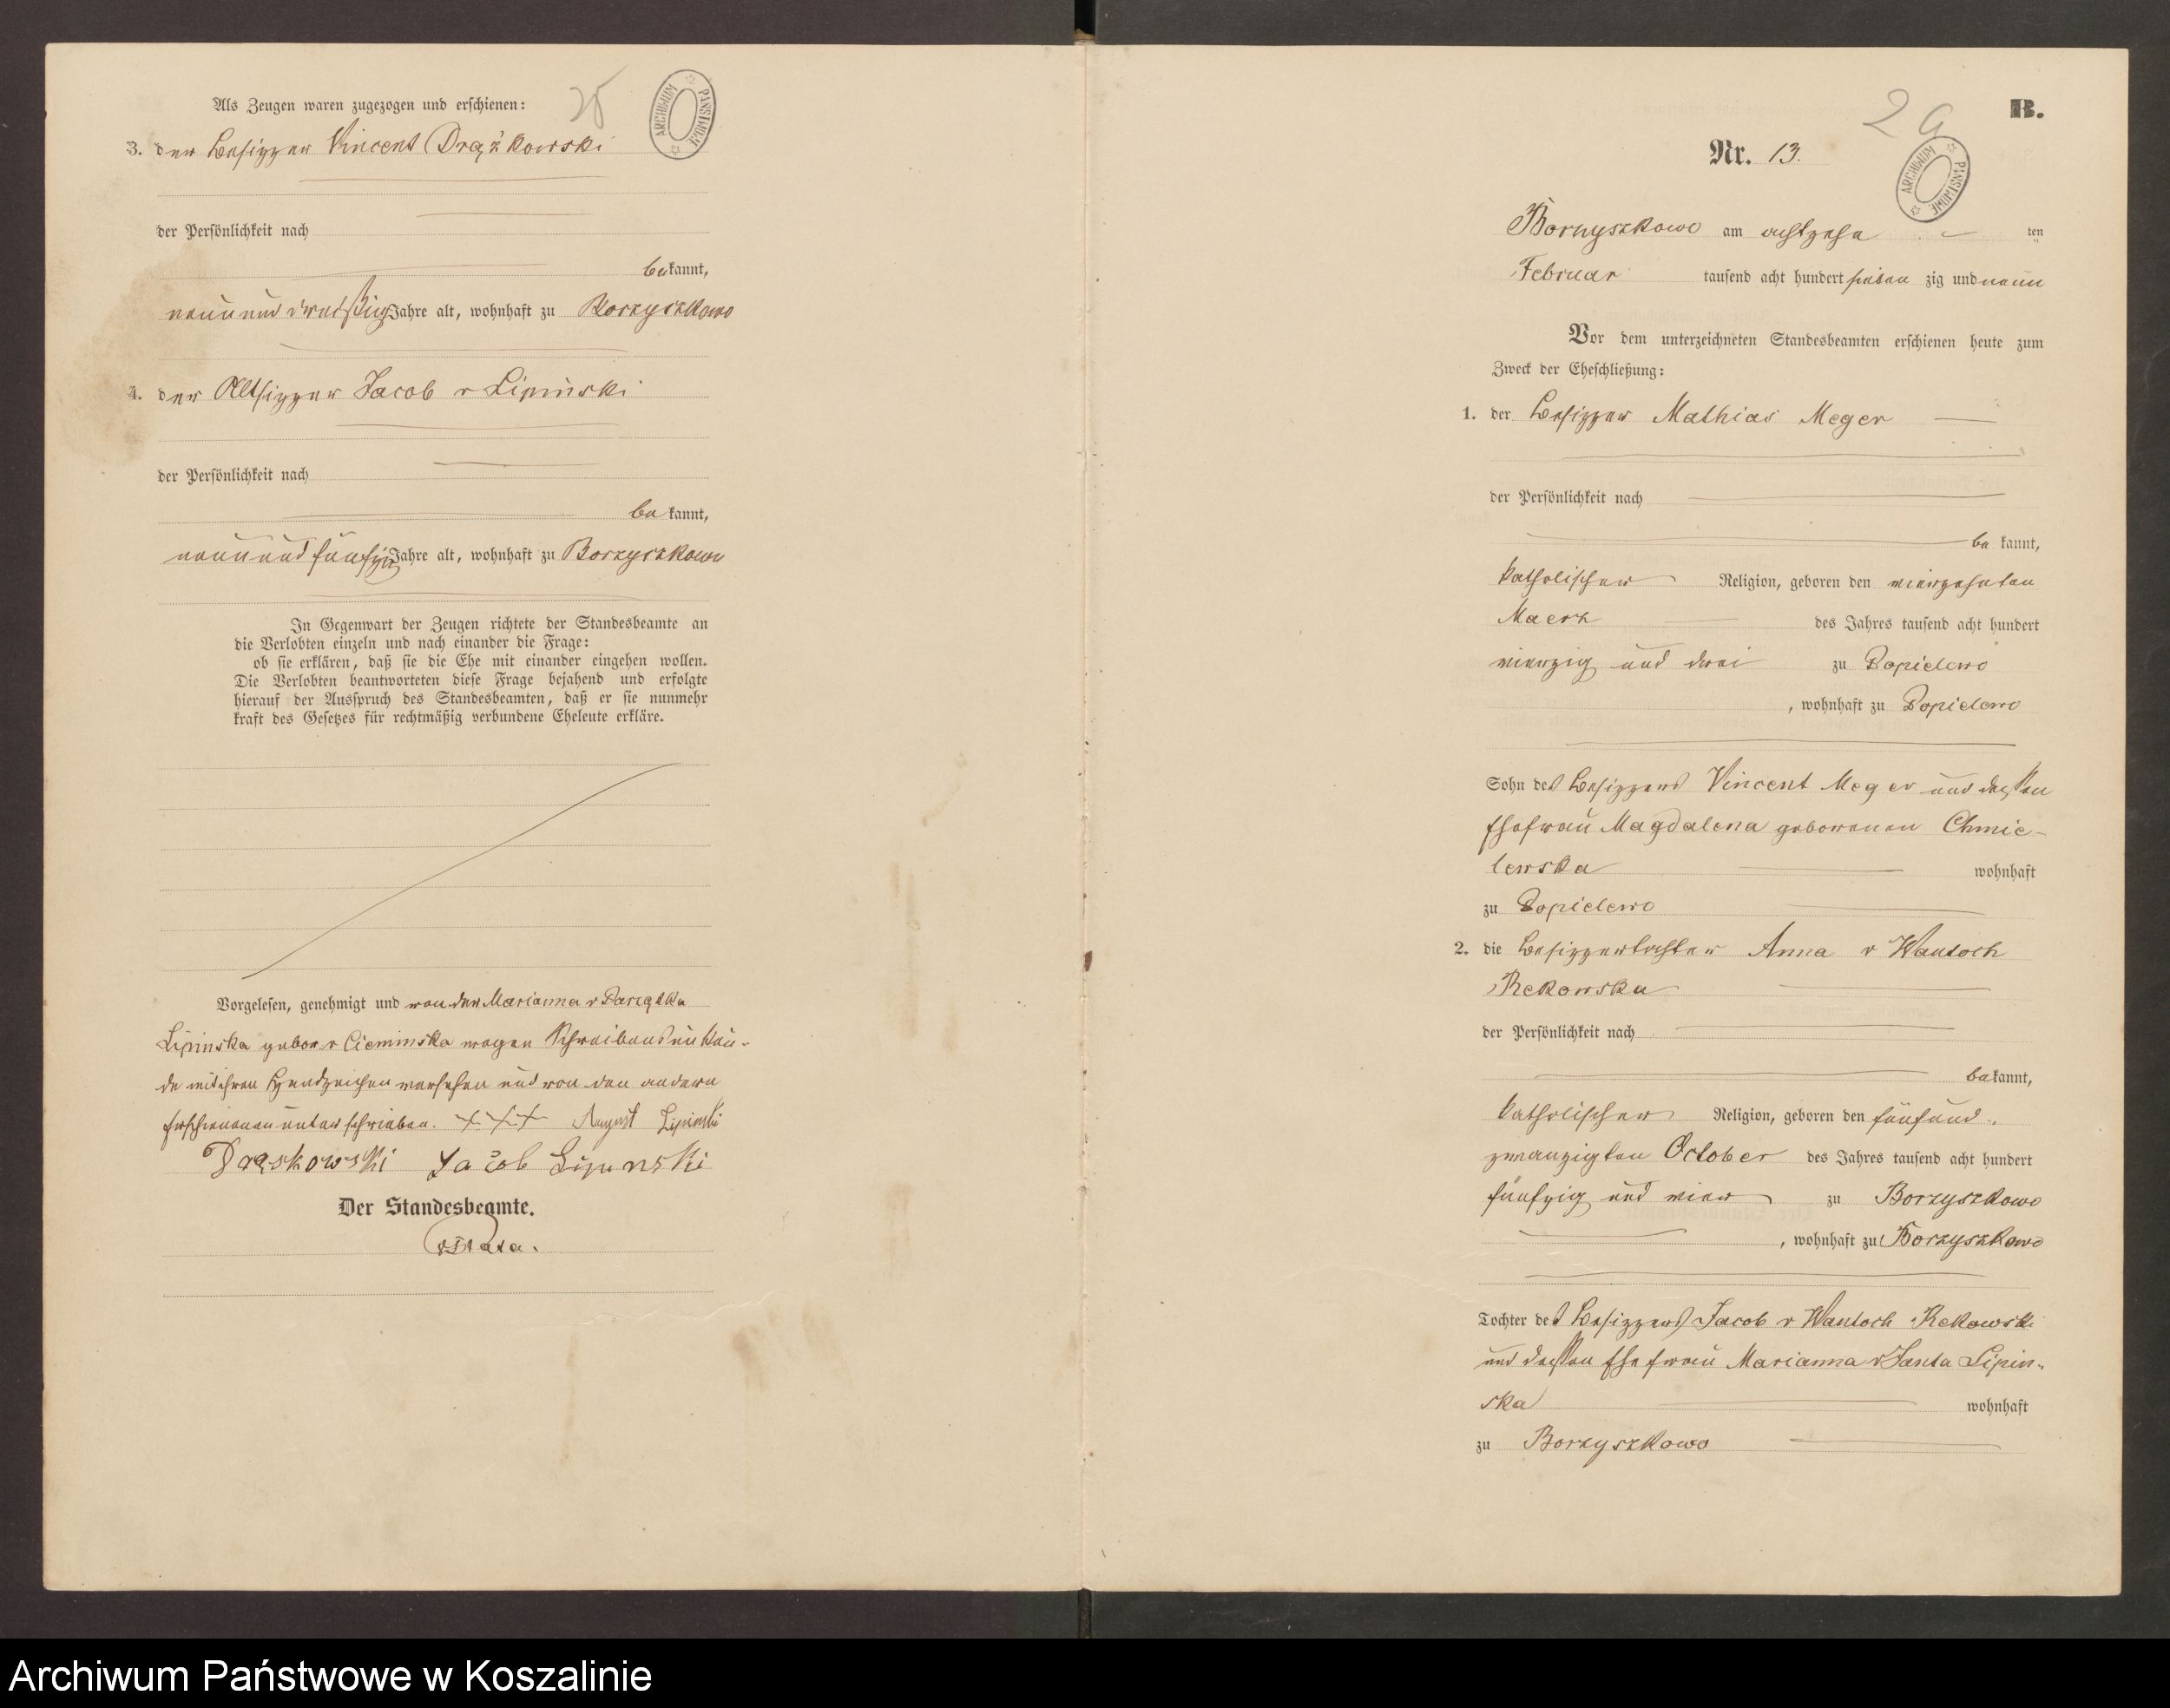 25
ARCHIWUM PAŃSTWOWE
Als Zeugen waren zugezogen und erschienen:
3. der Besitzer Vincent Drążkowski
der Persönlichkeit nach
bekannt,
neun und dreißig Jahre alt, wohnhaft zu Borzyszkowo
4. der Altsitzer Jacob v Lipinski
der Persönlichkeit nach
bekannt,
neun und fünfzig Jahre alt, wohnhaft zu Borzyszkowo
In Gegenwart der Zeugen richtete der Standesbeamte an
die Verlobten einzeln und nach einander die Frage:
ob sie erklären, daß sie die Ehe mit einander eingehen wollen.
Die Verlobten beantworteten diese Frage bejahend und erfolgte
hierauf der Ausspruch des Standesbeamten, daß er sie nunmehr
kraft des Gesetzes für rechtmäßig verbundene Eheleute erkläre.
Vorgelesen, genehmigt und von der Marianna v
Lipinska gebor v Cieminska wegen Schreibensunkun-
de mit ihren Handzeichen versehen und von den andern
Erschienenen unterschrieben. +++ August Lipinski
Drąskowski Jacob Lipinski
Der Standesbeamte.
29
B.
ARCHIWUM PAŃSTWOWE
Nr. 13.
Borzyszkowo am achtzehn ten
Februar tausend acht hundert sieben zig und neun
Vor dem unterzeichneten Standesbeamten erschienen heute zum
Zweck der Eheschließung:
1. der Besitzer Mathias Meger
der Persönlichkeit nach
be kannt,
katholischer Religion, geboren den vierzehnten
Maerz des Jahres tausend acht hundert
vierzig und drei zu Dopielewo
, wohnhaft zu Dopielewo
Sohn des Besitzers Vincent Meger und dessen
Ehefrau Magdalena geborenen Chmie-
lewska wohnhaft
zu Dopielewo
2. die Besitzertochter Anna v Wantoch
Rekowska
der Persönlichkeit nach
bekannt,
katholischer Religion, geboren den fünfund-
zwanzigsten October des Jahres tausend acht hundert
fünfzig und vier zu Borzyszkowo
, wohnhaft zu Borzyszkowo
Tochter des Besitzers Jacob v Wantoch Rekowski
und dessen Ehefrau Marianna v Janta Lipin-
ska wohnhaft
zu Borzyszkowo
Archiwum Państwowe w Koszalinie